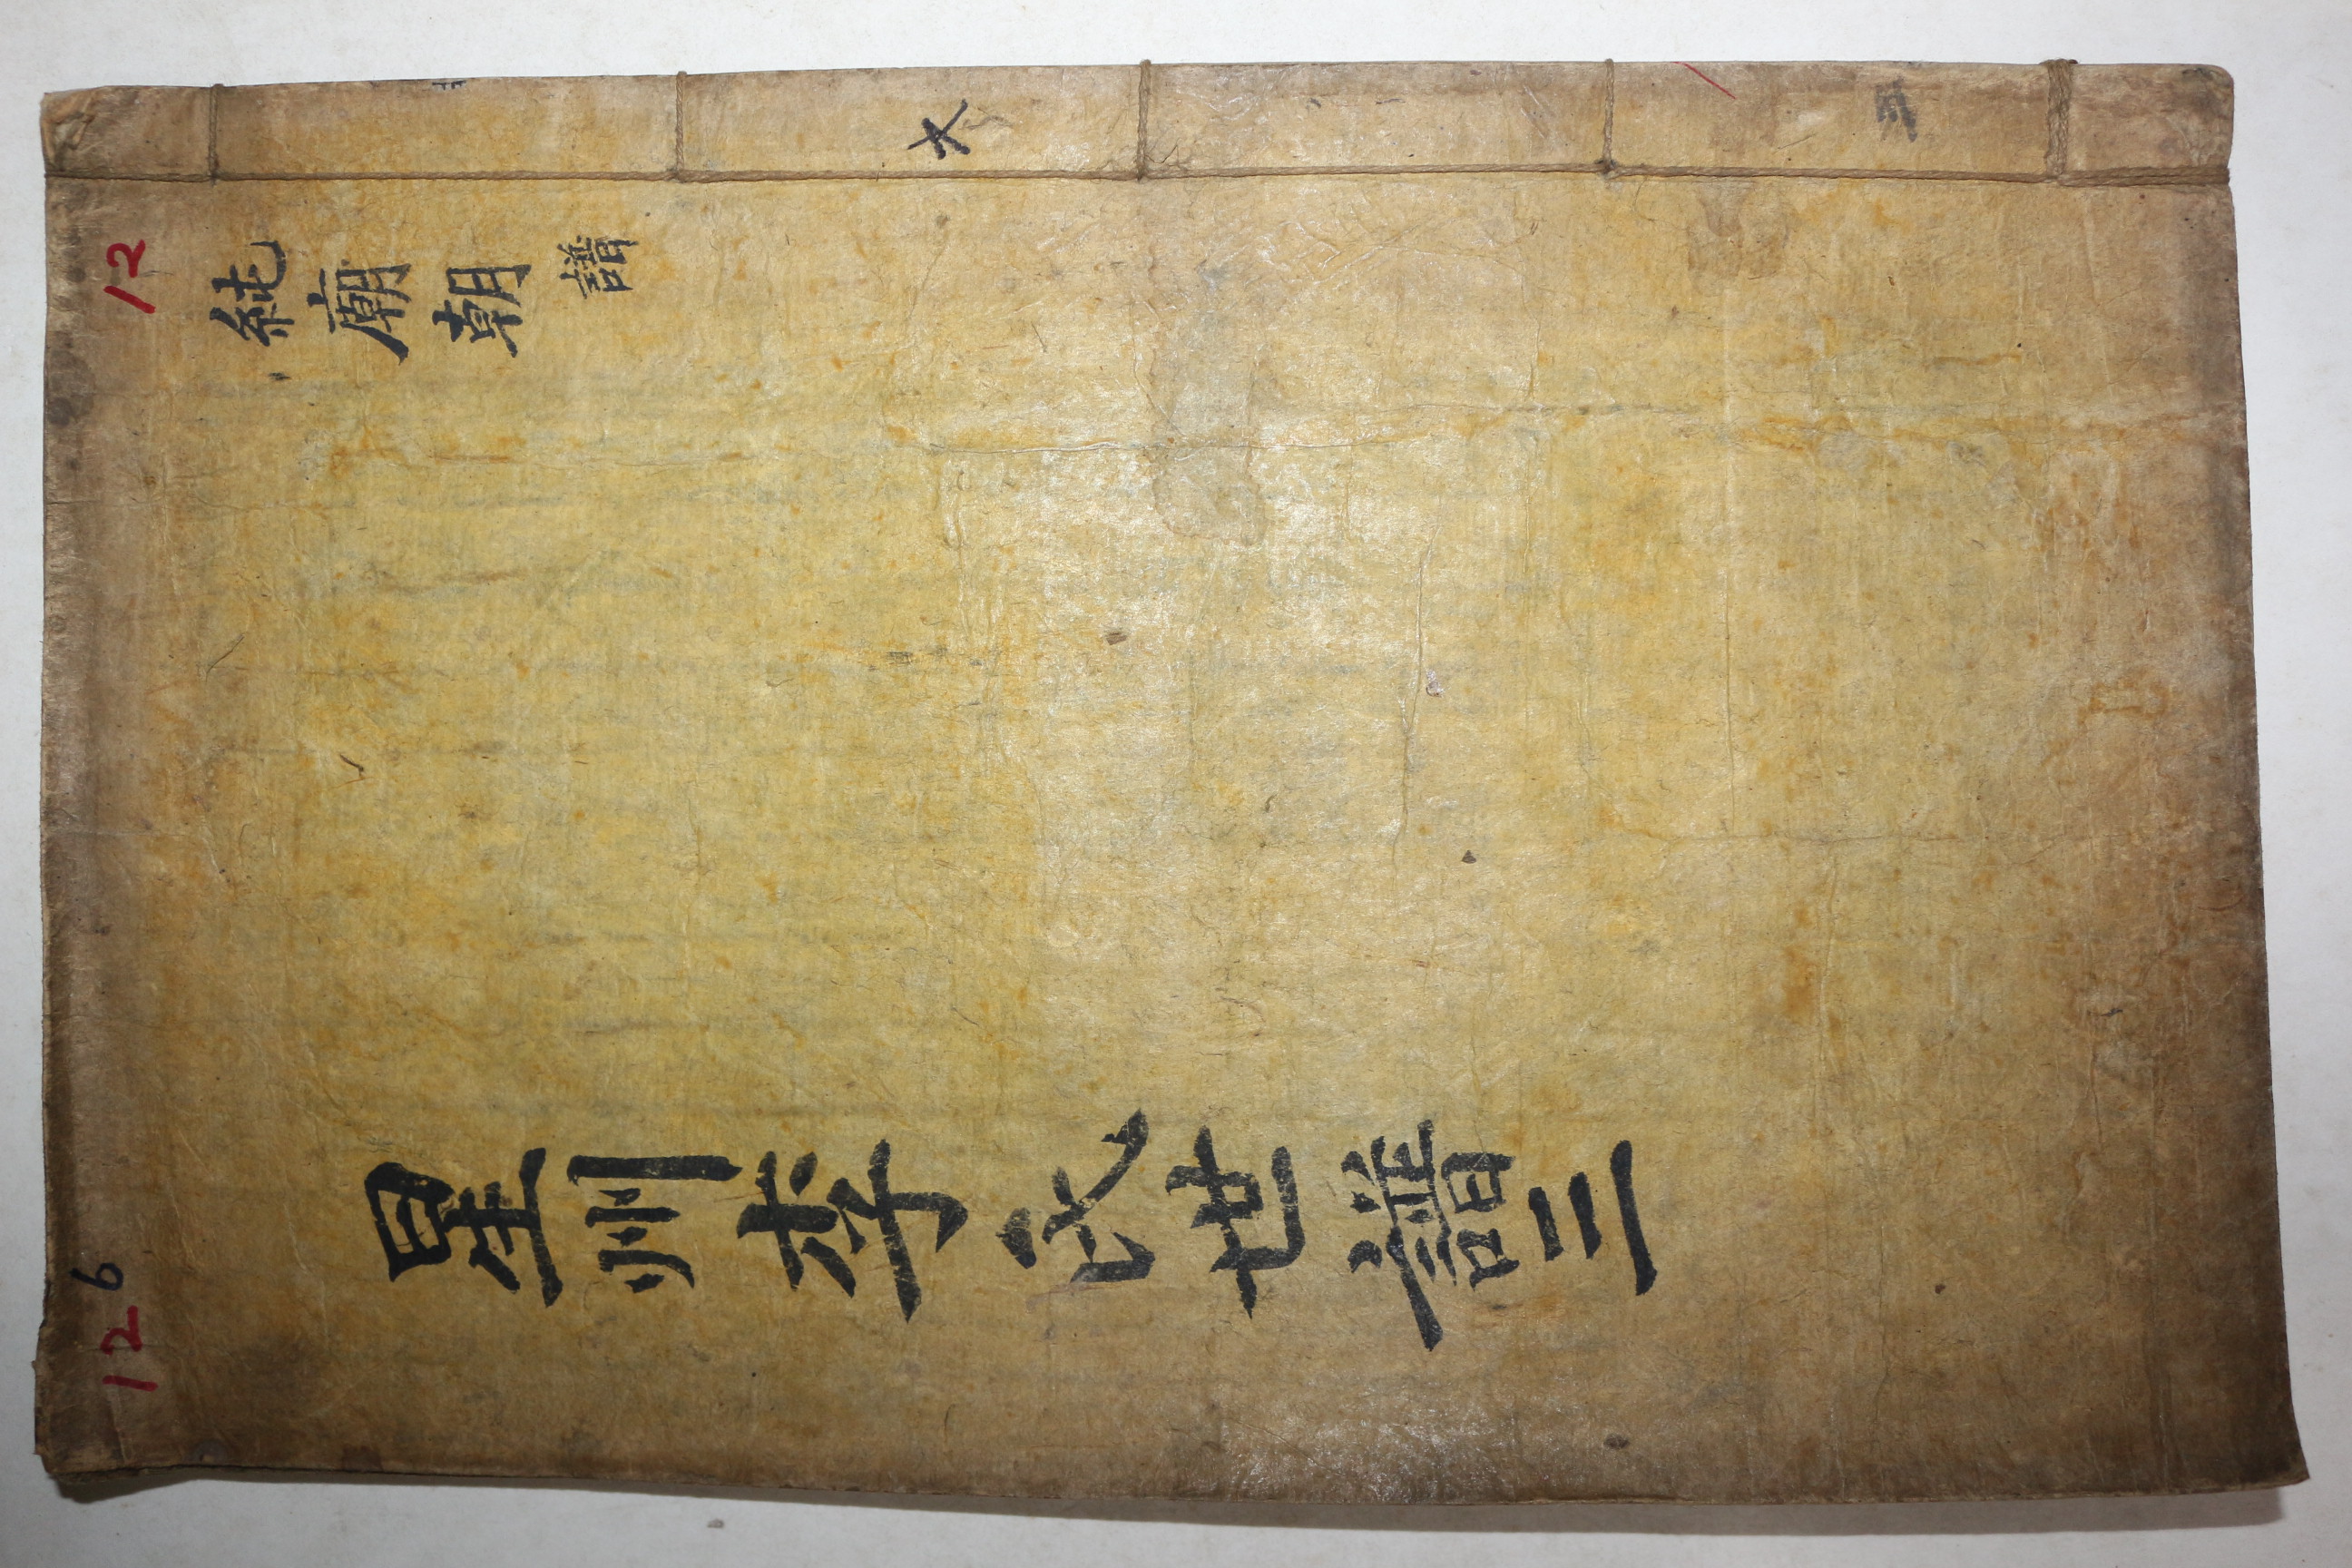 星州李氏世譜 三
純廟朝譜
大
12
6
12